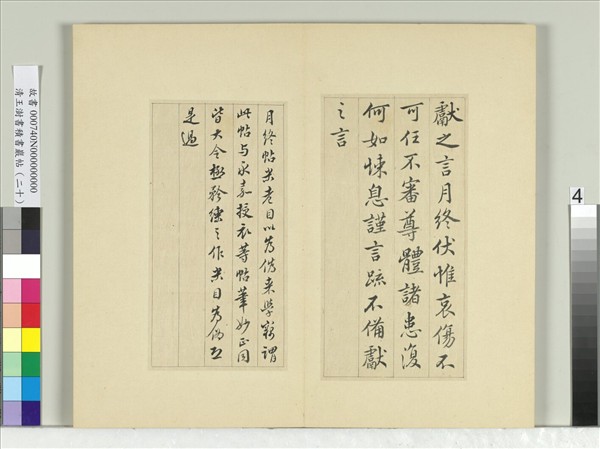 獻之言月終伏惟哀傷不
可任不審尊體諸患復
何如悚息謹言疏不備獻
之言
月終帖米老目以為偽来學謂
此帖与永嘉授衣等帖筆妙正同
皆大令極矜練之作米目為偽恐
是過
故書 000740N000000000
清王澍書積書巖帖（二十）
4